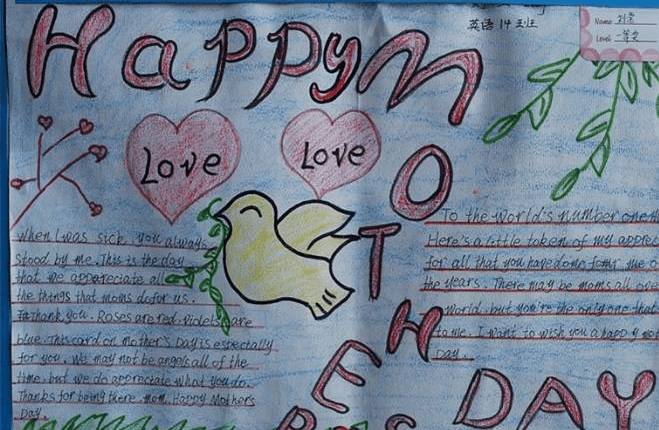 Happy
英语14班
Name
Level 一等奖
MOTHER
DAY
Love
Love
When I was sick you always
stood by me. This is the day
that we appareciate all
the things that moms do for us.
Tothank you. Roses are red. violets are
blue. This card on Mother's Day is especially
for you. We may not be angels all of the
time. but we do appreciate what you do.
Thanks for being there mom. Happy Mothers
Day.
To the world's number one
Here's a little token of my apprec
for all that you have done for me o
the years. There may be moms all ove
world. but you're the only one that
to me. I want to wish you a happy mo
Day.